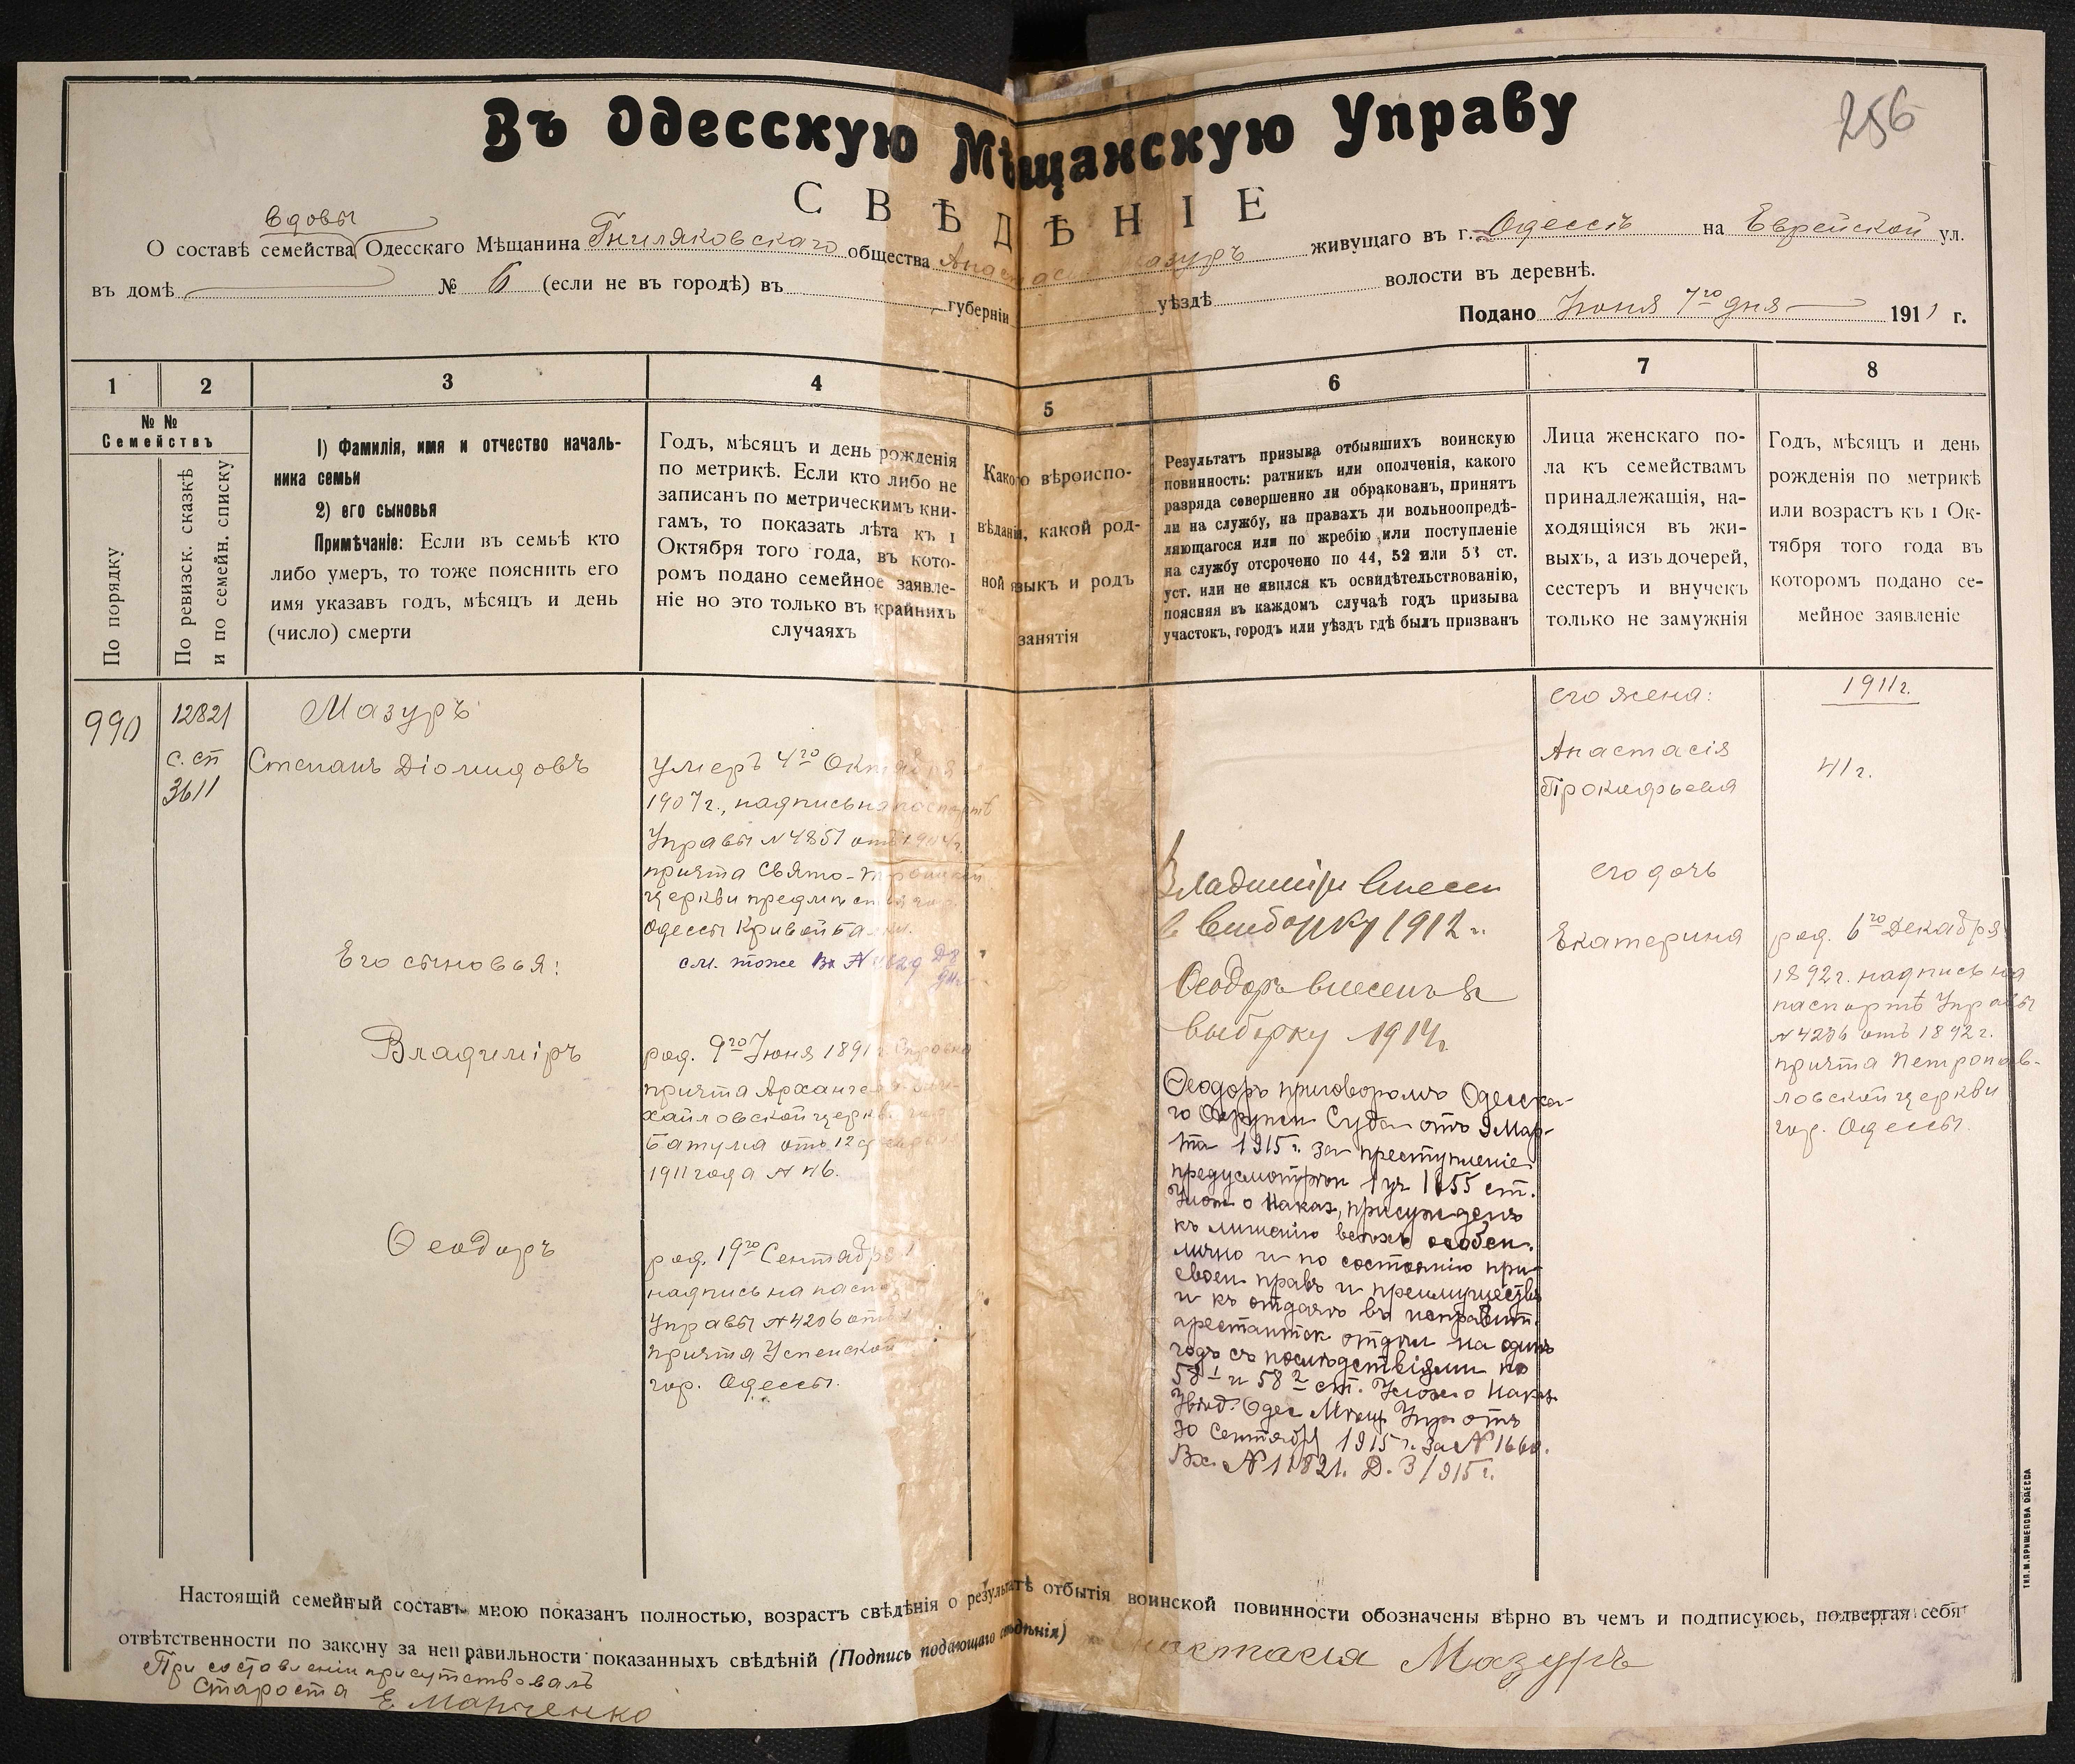 Въ Одесскую Мѣщанскую Управу
256
СВѢДѢНІЕ
вдовы
О составѣ семейства Одесскаго Мѣщанина Гниляковскаго общества Анастасія Мазуръ живущаго въ г. Одессѣ на Еврейской ул.
въ домѣ № 6 (если не въ городѣ) въ губерніи уѣздѣ волости въ деревнѣ.
Подано Іюня 7го дня 1911 г.
1
2
3
4
5
6
7
8
№ №
Семействъ
По порядку
По ревизск. сказкѣ
и по семейн. списку
1) Фамилія, имя и отчество началь-
ника семьи
2) его сыновья
Примѣчаніе: Если въ семьѣ кто
либо умеръ, то тоже пояснить его
имя указавъ годъ, мѣсяцъ и день
(число) смерти
Годъ, мѣсяцъ и день рожденія
по метрикѣ. Если кто либо не
записанъ по метрическимъ кни-
гамъ, то показать лѣта къ 1
Октября того года, въ кото-
ромъ подано семейное заявле-
ніе но это только въ крайнихъ
случаяхъ
Какого вѣроиспо-
вѣданія, какой род-
ной языкъ и родъ
занятія
Результатъ призыва отбывшихъ воинскую
повинность: ратникъ или ополченія, какого
разряда совершенно ли обракованъ, принятъ
ли на службу, на правахъ ли вольноопредѣ-
ляющагося или по жребію или поступленіе
на службу отсрочено по 44, 52 или 53 ст.
уст. или не явился къ освидѣтельствованію,
поясняя въ каждомъ случаѣ годъ призыва
участокъ, городъ или уѣздъ гдѣ былъ призванъ
Лица женскаго по-
ла къ семействамъ
принадлежащія, на-
ходящіяся въ жи-
выхъ, а изъ дочерей,
сестеръ и внучекъ
только не замужнія
Годъ, мѣсяцъ и день
рожденія по метрикѣ
или возрастъ къ 1 Ок-
тября того года въ
которомъ подано се-
мейное заявленіе
990
12821
с. сп
3611
Мазуръ
Степанъ Діомидовъ
Его сыновья:
Владиміръ
Ѳеодоръ
умеръ 4го Октября
1907г., надпись на паспортѣ
Управы №4857 отъ 1904г.
причта Свято-Троицкой
церкви предмѣстья гор.
Одессы Кривой Балки.
см. тоже Вх №
род. 9го Іюня 1891г. Справка
причта Архангело-Ми-
хайловской церкви гор.
Батума отъ 12
1911 года №
род. 19го Сентября
надпись на паспор
Управы №4206 отъ
причта Успенской
гор. Одессы.
Владиміръ внесен
в выборку 1912г.
Ѳеодоръ внесенъ в
выборку 1914г.
Ѳеодоръ приговоромъ Одесска-
го Окружн Суда отъ 9 Мар-
та 1915 г. за преступленіе
предусмотрѣн 1 ч. 1655 ст.
Улож о Наказ, присужденъ
къ лишенію всѣхъ особен.
лично и по состоянію при-
своен правъ и преимуществъ
и къ отдачѣ въ исправит.
арестантск отдѣл на одинъ
годъ съ послѣдствіями по
58 1 и 58 2 ст. Улож о Наказ.
Увѣд. Одес Мѣщ Упр отъ
30 Сентября 1915 г. за №
Вх. № 11821. Д. 3/915 г.
его жена:
Анастасія
Прокофьева
его дочь
Екатерина
1911г.
41г.
род. 6го Декабря
1892г. надпись на
паспортѣ Управы
№4206 отъ 1892г.
причта Петропав-
ловской церкви
гор. Одессы.
Настоящій семейный составъ мною показанъ полностью, возрастъ свѣдѣнія о результатѣ отбытія воинской повинности обозначены вѣрно въ чемъ и подписуюсь, подвергая себя
отвѣтственности по закону за неправильности показанныхъ свѣдѣній (Подпись подающаго свѣдѣнія) Анастасія Мазуръ
При составленіи присутствовалъ
Староста Е Марченко
ТИП. И. ПРИЩЕПОВА ОДЕССА